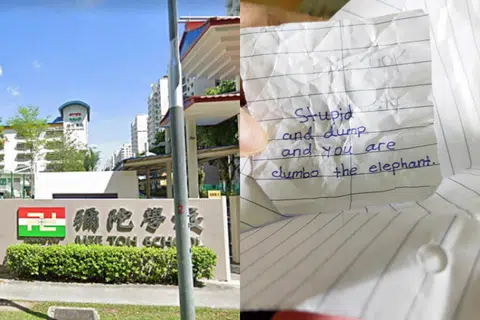 彌陀學
MEE TOH SCHOOL
Stupid
and dump
and you are
dumbo the elephant.